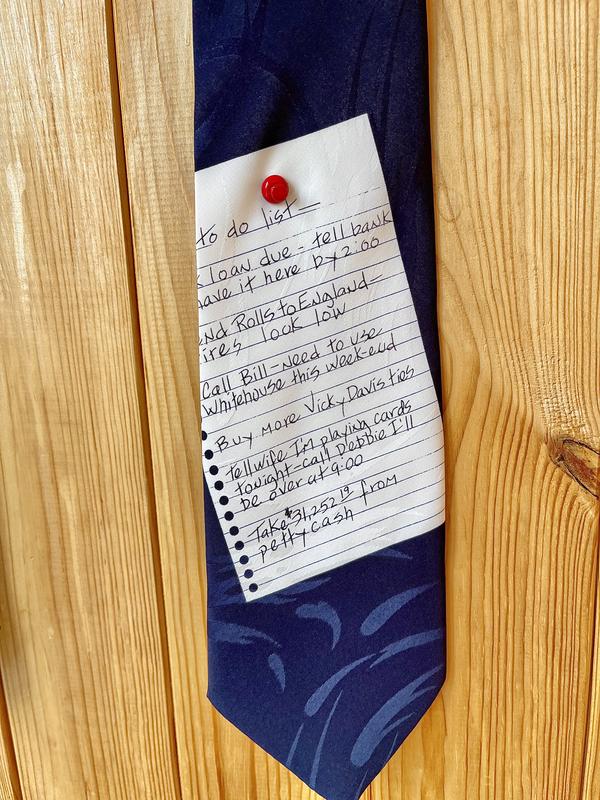 to do list—
loan due - tell bank
have it here by 2:00
Rolls to England—
look low
Call Bill - need to use
Whitehouse this week-end
Buy more Vicky Davis ties
Tell wife I'm playing cards
tonight - call Debbie I'll
be over at 9:00
Take $31,252.19 from
petty cash